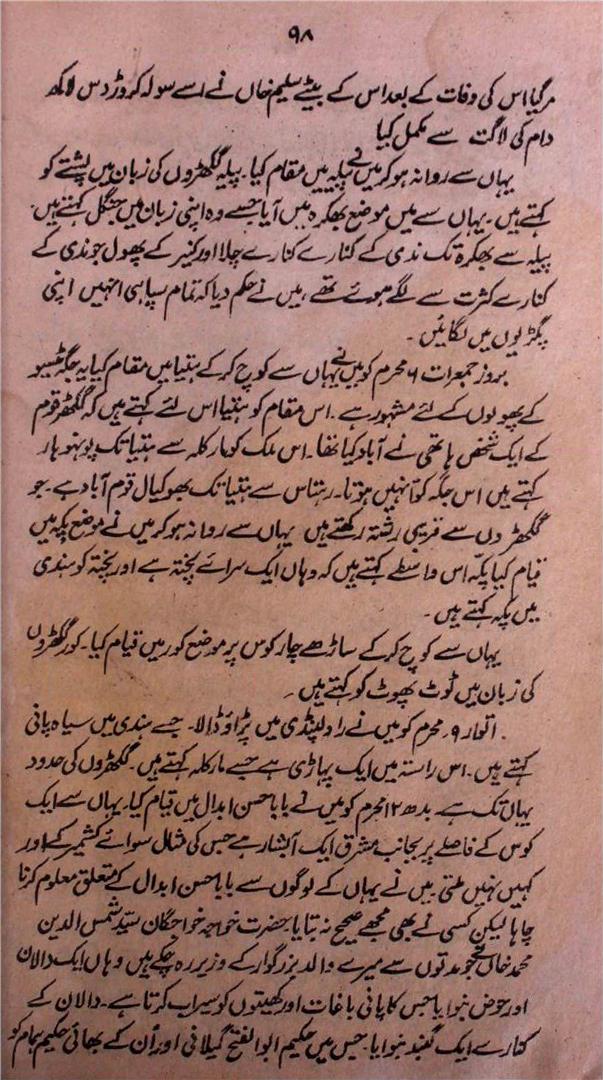 ۹۸
مر گیا اس کی وفات کے بعد اس کے بیٹے سلیم خاں نے اسے سولہ کروڑ دس لاکھ
دام کی لاگت سے مکمل کیا
یہاں سے روانہ ہو کر میں نے پیلہ میں مقام کیا۔ پیلہ گکھڑوں کی زبان میں پشتے کو
کہتے ہیں۔ یہاں سے میں موضع بھکرہ میں آیا جسے وہ اپنی زبان میں جنگل کہتے ہیں
پیلہ سے بھکرہ تک ندی کے کنارے کنارے چلا اور کنیر کے پھول جو ندی کے
کنارے کثرت سے لگے ہوئے تھے، میں نے حکم دیا کہ تمام سپاہی انہیں اپنی
پگڑیوں میں لگائیں۔
بروز جمعرات ۶ محرم کو میں نے یہاں سے کوچ کر کے ہتیا میں مقام کیا یہ جگہ ٹیسو
کے پھولوں کے لئے مشہور ہے۔ اس مقام کو ہتیا اس لئے کہتے ہیں کہ گکھڑ قوم
کے ایک شخص ہاتھی نے آباد کیا تھا۔ اس ملک کو مارکلہ سے ہتیا تک پوٹھوہار
کہتے ہیں اس جگہ کوّا نہیں ہوتا۔ رہتاس سے ہتیا تک بھوکیال قوم آباد ہے۔ جو
گکھڑوں سے قریبی رشتہ رکھتے ہیں یہاں سے روانہ ہو کر میں نے موضع پکہ میں
قیام کیا پکّہ اس واسطے کہتے ہیں کہ وہاں ایک سرائے پختہ ہے اور پختہ کو ہندی
میں پکہ کہتے ہیں۔
یہاں سے کوچ کر کے ساڑھے چار کوس پر موضع کور میں قیام کیا۔ کور گکھڑوں
کی زبان میں ٹوٹ پھوٹ کو کہتے ہیں۔
اتوار ۹ محرم کو میں نے راولپنڈی میں پڑاؤ ڈالا۔ جسے ہندی میں سیاہ پانی
کہتے ہیں۔ اس راستہ میں ایک پہاڑی ہے جسے مارکلہ کہتے ہیں۔ گکھڑوں کی حدود
یہاں تک ہے۔ بدھ ۱۲ محرم کو میں نے بابا حسن ابدال میں قیام کیا۔ یہاں سے ایک
کوس کے فاصلے پر بجانب مشرق ایک آبشار ہے جس کی مثال سوائے کشمیر کے اور
کہیں نہیں ملتی میں نے یہاں کے لوگوں سے بابا حسن ابدال کے متعلق معلوم کرنا
چاہا لیکن کسی نے بھی مجھے صحیح نہ بتایا۔ حضرت خواجہ خواجگان سید شمس الدین
محمد خافی جو مدتوں سے میرے والد بزرگوار کے وزیر رہ چکے ہیں وہاں ایک دالان
اور حوض بنوایا جس کا پانی باغات اور کھیتوں کو سیراب کرتا ہے۔ دالان کے
کنارے ایک گنبد بنوایا جس میں حکیم ابوالفتح گیلانی اور اُن کے بھائی حکیم ہمام کو